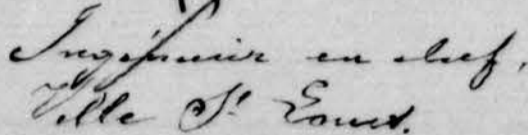 Ingénieur en chef,
Ville St Louis.